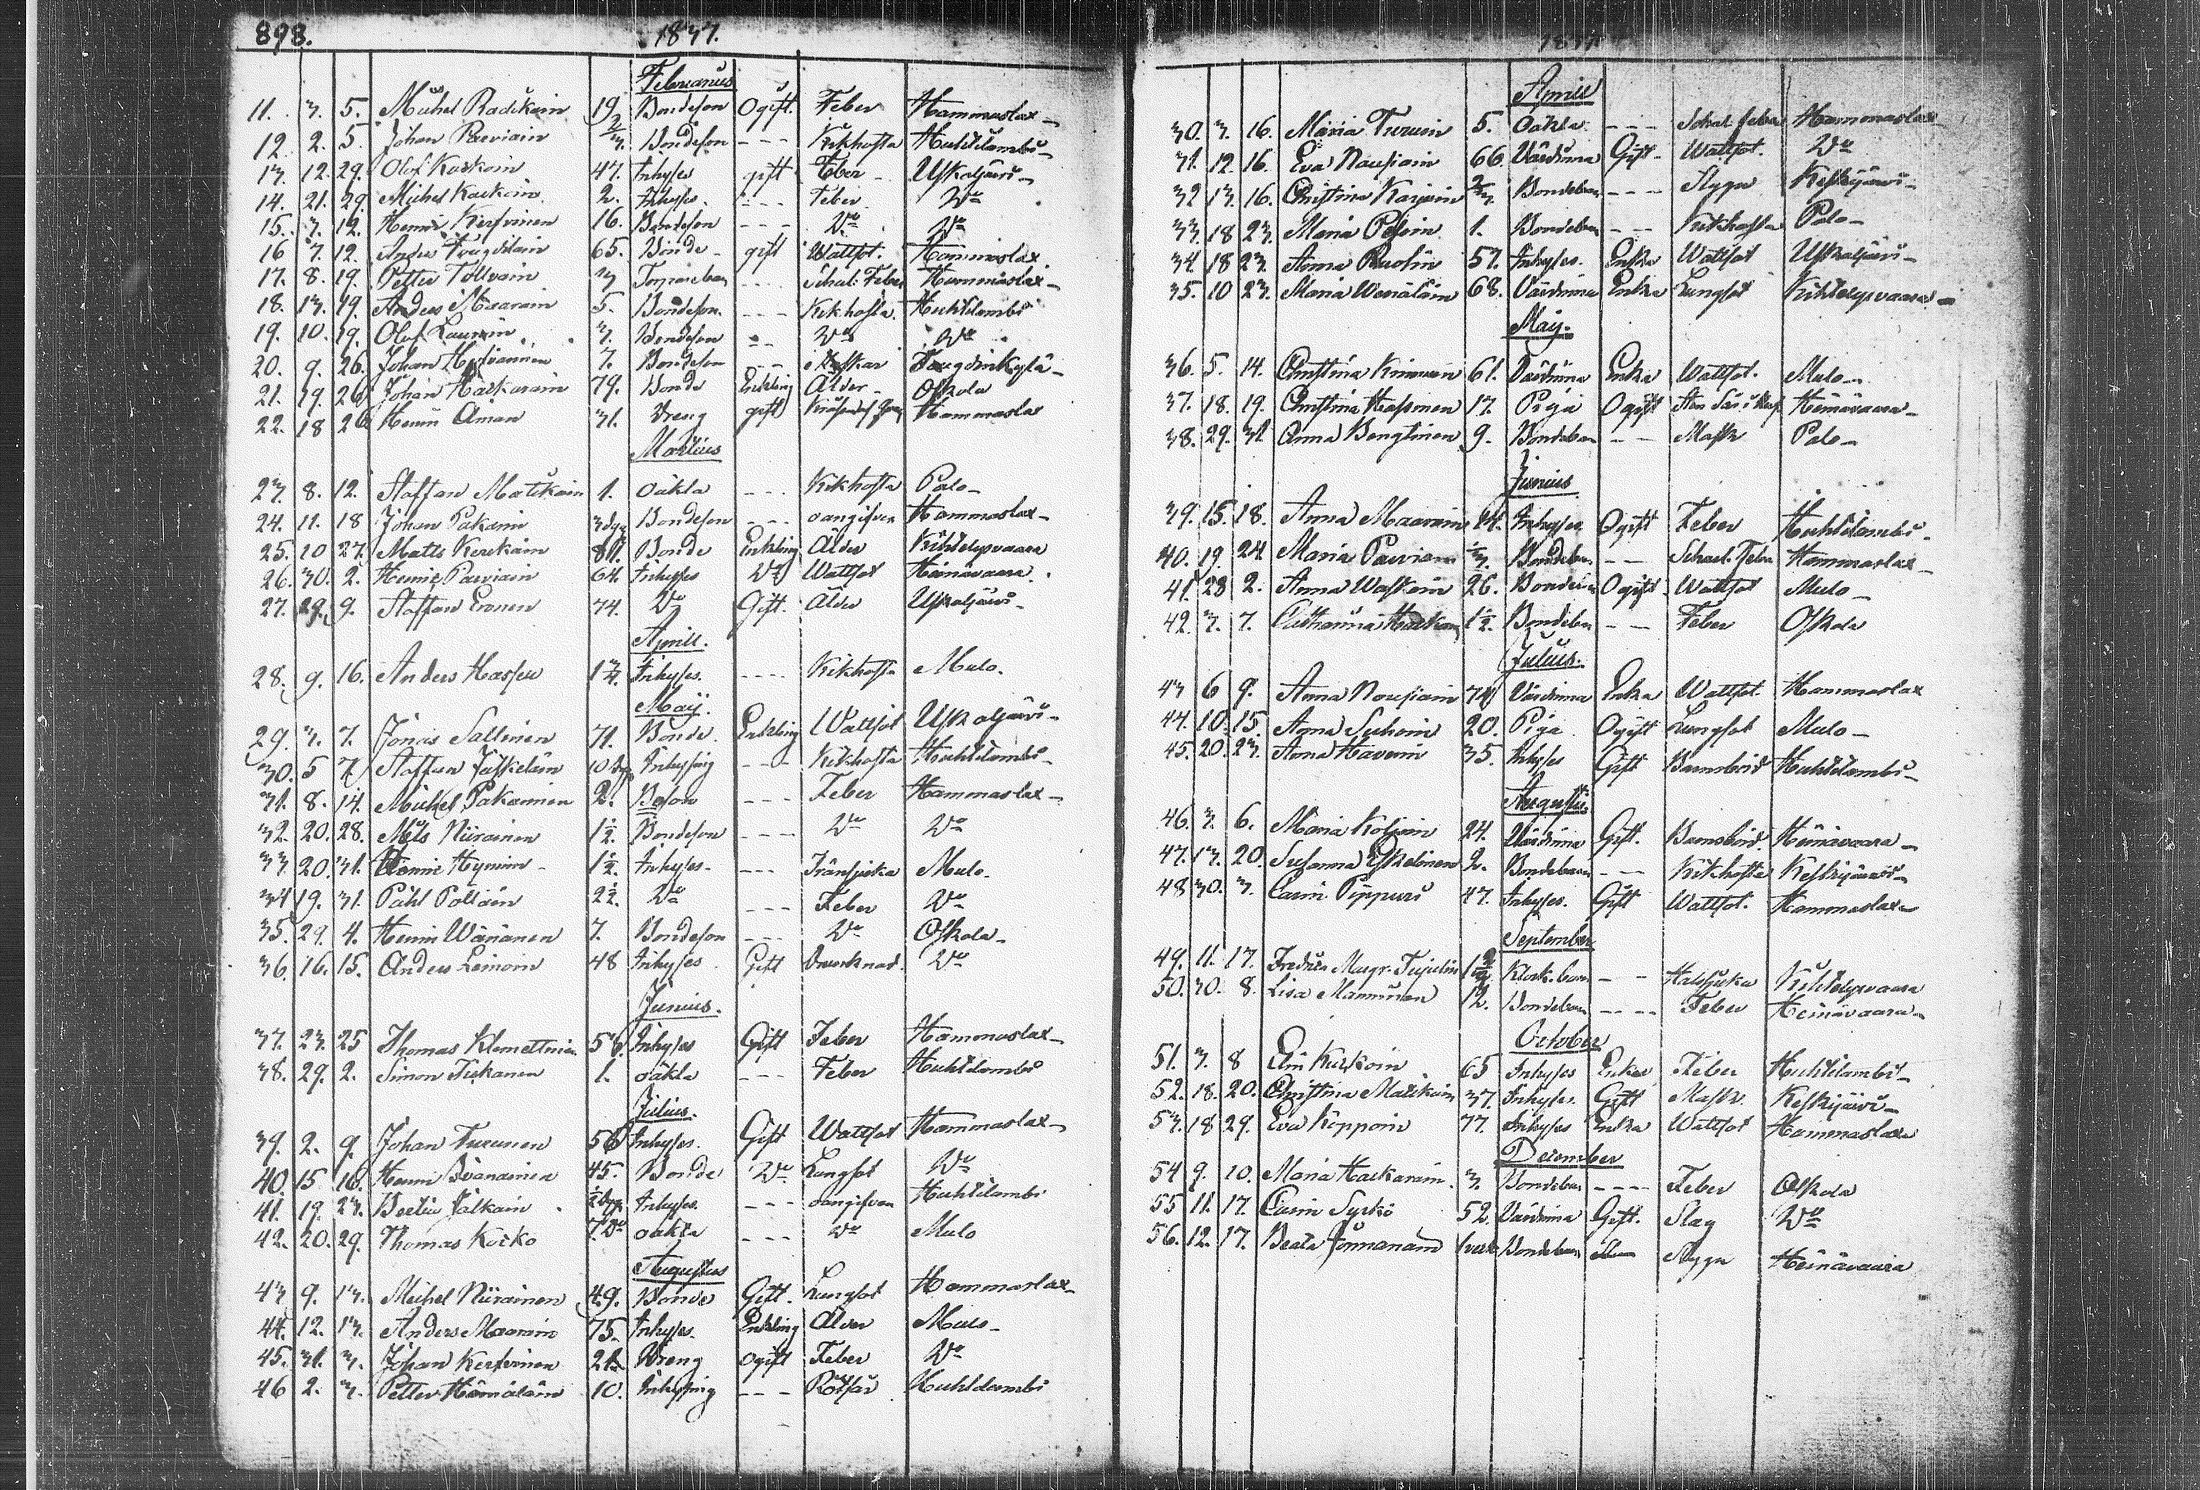 898. 1837.
Februarius
11. 3. 5. Michel Radikain 19 Bondeson Ogift. Feber Hammaslax
12. 2. 5. Johan Parviain Bondeson - - - Kikhosta Huhtilambi
13. 12. 29. Olof Karkain 47. Inhyses gift Feber Uskaljärvi
14. 21. 29. Michel Karkain 2. Inhyses - - - Feber Do
15. 3. 12. Henric Kerfvinen 16. Bondeson - - - Do Do
16 7. 12. Anders 65. Bonde gift Wattsot. Hammaslax
17. 8. 19. Petter Tolvain 3 - - - Scharl. Feber Hammaslax
18. 13. 19. Anders Maarain 5. Bondeson - - - Kikhosta Huhtilambi
19. 10. 19. Olof Laurin 3. Bondeson - - Do Do
20. 9. 26. Johan 7. Bondeson - - -
21. 19. 26. Johan Hackarain 79. Bonde Enkling Ålder Oskola
22. 18 26. Henric Aman 31. Dreng gift Hammaslax
Martius
23. 8. 12. Staffan Matikain 1. oäkta - - - Kikhosta Palo
24. 11. 18 Johan Pakarin 3 dgr Bondeson - - - oangifven Hammaslax
25. 20 27. Matts Kerckäin 81. Bonde Enkling Ålder Kihtelysvaara
26. 30. 2. Henric Parviain 64. Inhyses Do Wattsot Heinävaara
27. 29. 9. Staffan Eronen 74. Do Gift. Ålder Uskaljärvi
Aprill.
28. 9. 16. Anders Hassin 1 3/4 Inhyses. - - - Kikhosta Mulo.
Maij.
29. 3. 7. Jonas Sallinen 71. Bonde. Enkling Wattsot Uskaljärvi
30. 5 7 Staffan Juskeläin 10 dgr Inhysing - - - Kikhosta Huhtilambi
31. 8. 14. Michel Pakarinen 2. Boson - - - Feber Hammaslax
32. 20. 28. Nils Niirainen 1 1/2. Bondeson - - - Do Do
33 20. 31. Hennric Hyninn 1 1/2. Inhyses. - - - Mulo.
34 19. 31. Påhl Pöllain 2 1/2. Do - - - Feber Do
35. 29. 4. Henric Wänänen 7. Bondeson - - - Do Oskola
36. 16. 15. Anders Leinoin 48 Inhyses Gift Drunknad. Do
Junius.
37. 23. 25 Thomas Klemettinen 56. Inhyses Gift Feber Hammaslax
38. 29. 2. Simon Tiikanen 1. oäkta - - - Feber Huhtilambi
Julius.
39. 2. 9. Johan Turunen 56 Inhyses. Gift Wattsot Hammaslax
40. 15 16. Henric Ivanainen 45. Bonde Do Lungsot Do
41. 19. 23. Jalkain Inhyses. - - - oangifven Huhtilambi
42. 20. 29. Thomas Kocko 7. Do oäkta - - - Do Mulo
Augustus
43 9. 13. Michel Niirainen 49. Bonde Gift. Lungsot Hammaslax
44. 12. 13. Anders Maarain 75. Inhyses. Enkling Ålder Mulo
45. 31. 3. Johan Kerfvinen 21. Dreng ogift Feber Do
46 2. 3. Petter Hämäläin 10. Inhysing - - - Rötfeber Huhtilambi
Aprill
30. 3. 16. Maria Turuin 5. Oäkta - - - Schar. feber Hammaslax
31. 12. 16. Eva Nousiain 66. Värdinna Gift. Wattsot. Do
32 13. 16. Christina Karjain Bondebarn - - - Slag Keskijärvi
33. 18 23. Maria 1. Bondebarn - - - Kikhosta Palo
34 18 23. Anna Puolin 57. Inhyses. Enka Wattsot Uskaljärvi
35. 10 23. Maria Wenäläin 68. Värdinna Enka Lungsot Kihtelysvaara
Maij.
36. 5. 14. Christina Kinnunen 61. Värdinna Enka Wattsot. Mulo
37. 18. 19. Christina Hassinen 17. Piga Ogift Heinävaara
38. 29. 31 Anna Bengtinen 9. Bondebarn - - Mask Palo
Junius
39. 15. 18. Anna Maarain 24. Inhyses Ogift Feber Huhtilambi.
40. 19. 24 Maria Parviain Bondebarn - - Scharl. Feber Hammaslax
41. 28 2. Anna Waskain 26. Bondeän Ogift Wattsot Mulo
42. 3. 7. Catharina Hackarn 1 1/2. Bondebarn - - Feber Oskola
Julius.
43 6 9. Anna Nousiain 74 Värdinna Enka Wattsot. Hammaslax
44. 10. 15. Anna Suhoin 20. Piga Ogift Lungsot Mulo
45. 20. 23. Anna Haverin 35. Inhyses Gift Barnsbörd Huhtilambi
Augustus
46. 3. 6. Maria Koljoin 24. Värdinna Gift. Barnsbörd. Heinävaara
47. 13. 20. Susanna Eskelinen 2. Bondebarn - - Kikhosta Keskijärvi
48 30. 3. Carin Pippuri 47. Inhyses. Gift Wattsot. Hammaslax
September
49. 11. 17. Fredrica Margr. Klock. barn - - Halssjuka Kihtelysvaara
50. 30. 8. Lisa Manninen 12. Bondebarn - - - Feber Heinävaara
October
51. 3. 8 Elin Kurkoin 65 Inhyses Enka Feber Huhtilambi
52. 18. 20. Christina Matikain 37. Inhyses. Gift Mask. Keskijärvi
53. 18 29. Eva Köppoin 77. Inhyses Enka Wattsot Hammaslax
December
54 9. 10. Maria Hackarain. 3. Bondebarn - - - Feber Oskola
55 11. 17. Carin Syrkö 52. Värdinna Gift. Slag Do
56. 12. 17. Beata 1 Bondebarn Heinävaara